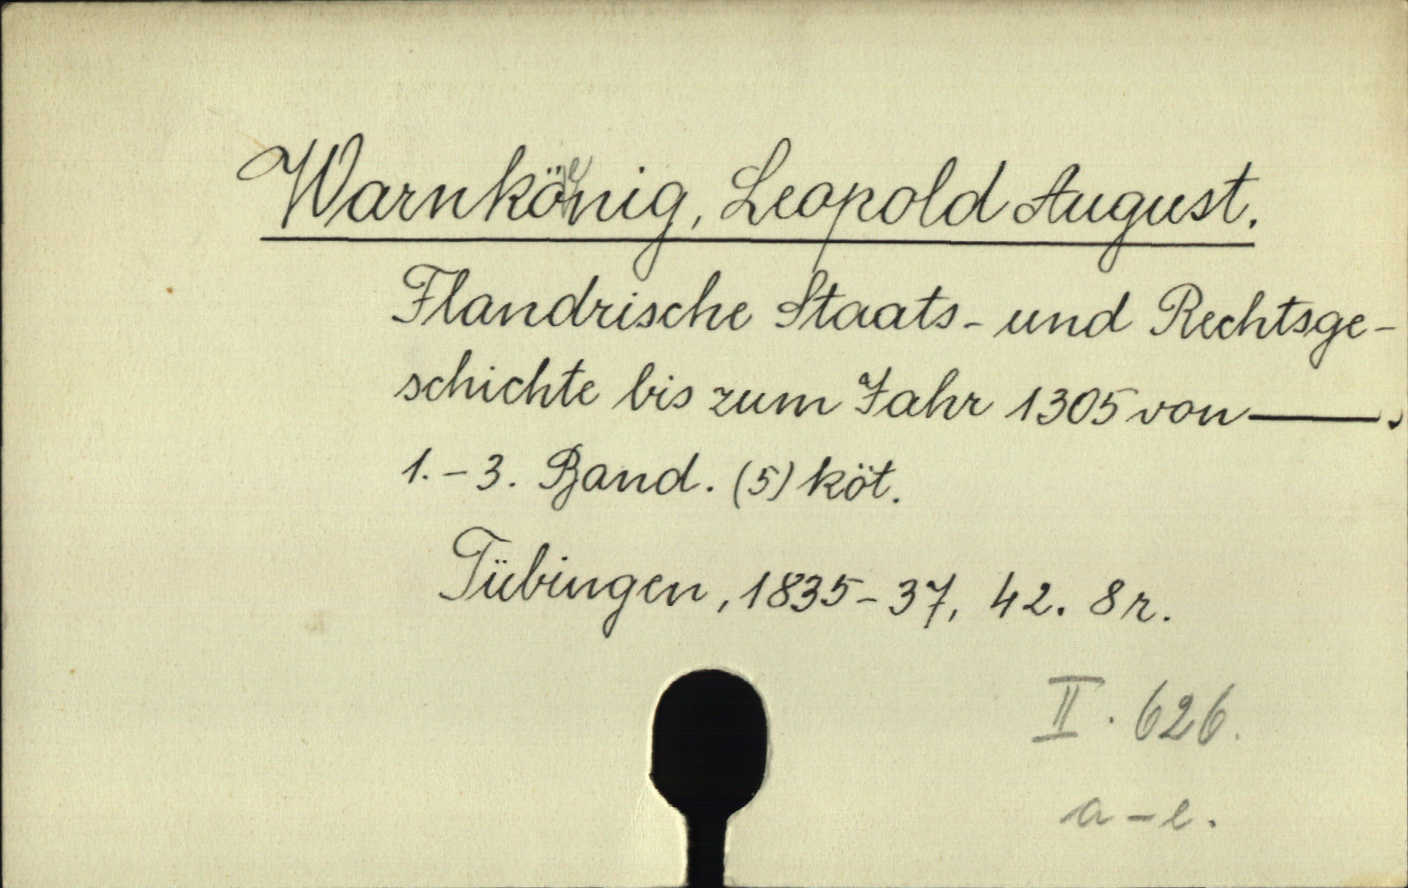 Warnkönig, Leopold August.
Flandrische Staats- und Rechtsge-
schichte bis zum Jahr 1305 von ——.
1.-3. Band. (5) köt.
Tübingen, 1835-37, 42. 8r.
II. 626.
a-e.